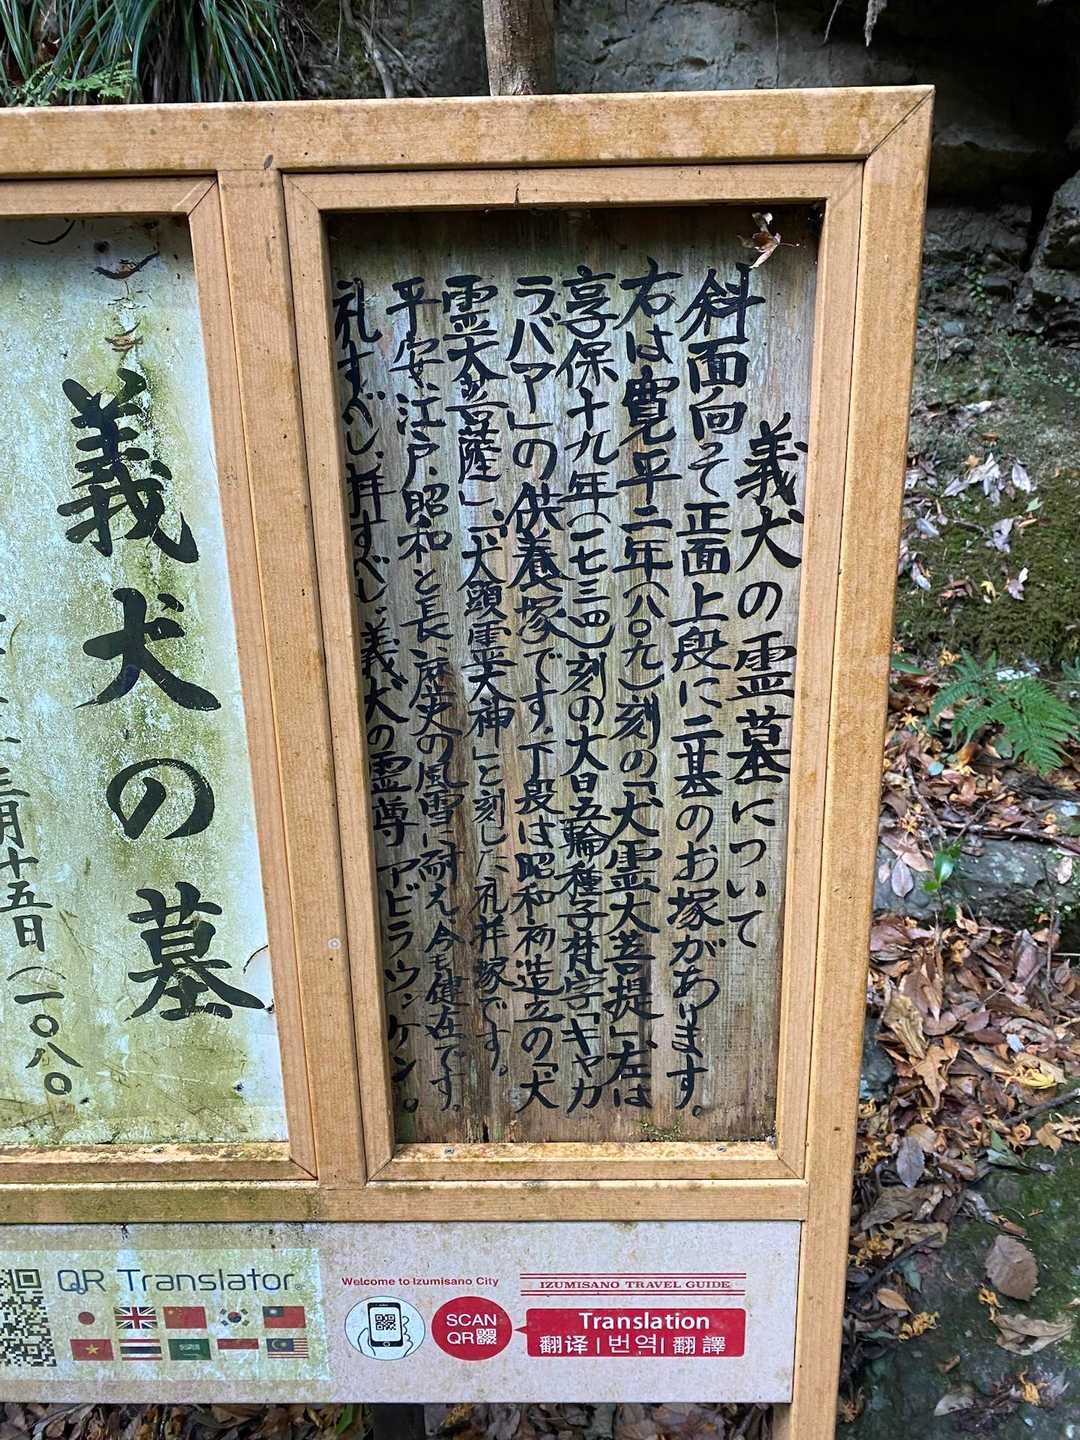 義犬の霊墓について
斜面向そ正面上段に二基のお塚があります。
右は寛平二年(八〇九)刻の「犬霊大菩提」左は
享保十九年(一七三四)刻の大日五輪種子梵字「キャカ
ラバア」の供養塚です。下段は昭和初造立の「犬
霊大菩薩」、「犬頭霊大神」と刻した礼拝塚です。
平安、江戸、昭和と長い歴史の風雪に耐え今も健在です。
礼すべし、拝すべし、義犬の霊尊 アビラウンケン。
義犬の墓
三月十五日(一〇八〇
QR Translator
Welcome to Izumisano City
SCAN
QR
IZUMISANO TRAVEL GUIDE
Translation
翻译 | 번역 | 翻譯